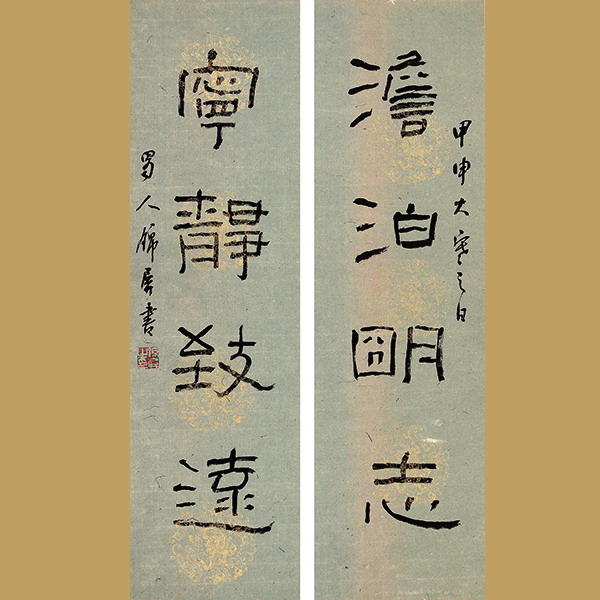 甲申大寒之日
澹泊朙志
寧靜致遠
蜀人錦屏書